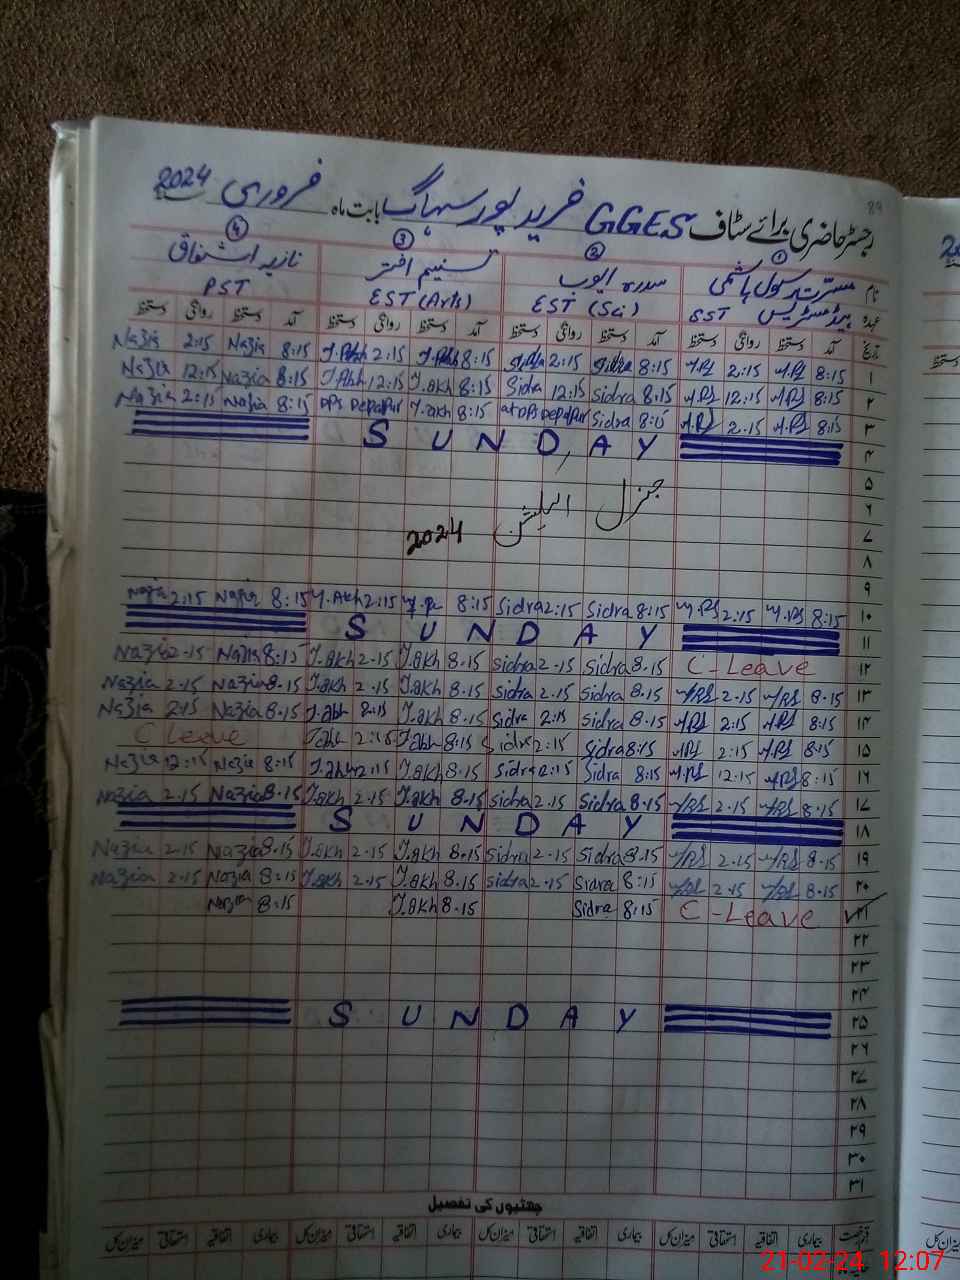 89
رجسٹر حاضری برائے سٹاف GGES فرید پور سہاگ بابت ماہ فروری 2024
① ② ③ ④
نام مسرت رسول ہاشمی سدرہ ایوب تسنیم اختر نازیہ اشفاق
عہدہ ہیڈ مسٹریس SST EST (Sci) EST (Arts) PST
تاریخ آمد دستخط روانگی دستخط آمد دستخط روانگی دستخط آمد دستخط روانگی دستخط آمد دستخط روانگی دستخط
۱ 8:15 2:15 8:15 Sidra 2:15 Sidra 8:15 2:15 8:15 Nazia 2:15 Nazia
۲ 8:15 12:15 8:15 Sidra 12:15 Sidra 8:15 T.akh 12:15 8:15 Nazia 12:15 Nazia
۳ 8:15 2:15 8:15 Sidra at DPS Depalpur 8:15 T.akh DPS Depalpur 8:15 Nazia 2:15 Nazia
۴ SUNDAY
۵
۶ جنرل الیکشن
۷ 2024
۸
۹
۱۰ 8:15 2:15 8:15 Sidra 2:15 Sidra 8:15 2:15 T.Akh 8:15 Nazia 2:15 Nazia
۱۱ SUNDAY
۱۲ C-Leave 8.15 Sidra 2-15 Sidra 8.15 T.akh 2-15 T.akh 8-15 Nazia 2-15 Nazia
۱۳ 8-15 2-15 8.15 Sidra 2.15 Sidra 8.15 T.akh 2-15 T.akh 8-15 Nazia 2-15 Nazia
۱۴ 8:15 2:15 8.15 Sidra 2:15 Sidra 8.15 T.akh 8-15 Nazia 2.15 Nazia
۱۵ 8:15 2:15 8:15 Sidra 2:15 Sidra 8:15 2:15 C Leave
۱۶ 8:15 12:15 8:15 Sidra Sidra 8.15 T.akh 8:15 Nazia 12:15 Nazia
۱۷ 8.15 2-15 8.15 Sidra 2.15 Sidra 8.15 T.akh 2-15 T.akh 8.15 Nazia 2.15 Nazia
۱۸ SUNDAY
۱۹ 8.15 2.15 8.15 Sidra 2-15 Sidra 8.15 T.akh 2-15 T.akh 8.15 Nazia 2.15 Nazia
۲۰ 8.15 2.15 8:15 Sidra 2.15 Sidra 8.15 T.akh 2-15 T.akh 8:15 Nazia 2.15 Nazia
۲۱ C-Leave 8:15 Sidra 8.15 T.akh 8:15 Nazia
۲۲
۲۳
۲۴
۲۵ SUNDAY
۲۶
۲۷
۲۸
۲۹
۳۰
۳۱
چھٹیوں کی تفصیل
بیماری اتفاقیہ استحقاقی میزان کل بیماری اتفاقیہ استحقاقی میزان کل بیماری اتفاقیہ استحقاقی میزان کل بیماری اتفاقیہ استحقاقی میزان کل
21-02-24 12:07